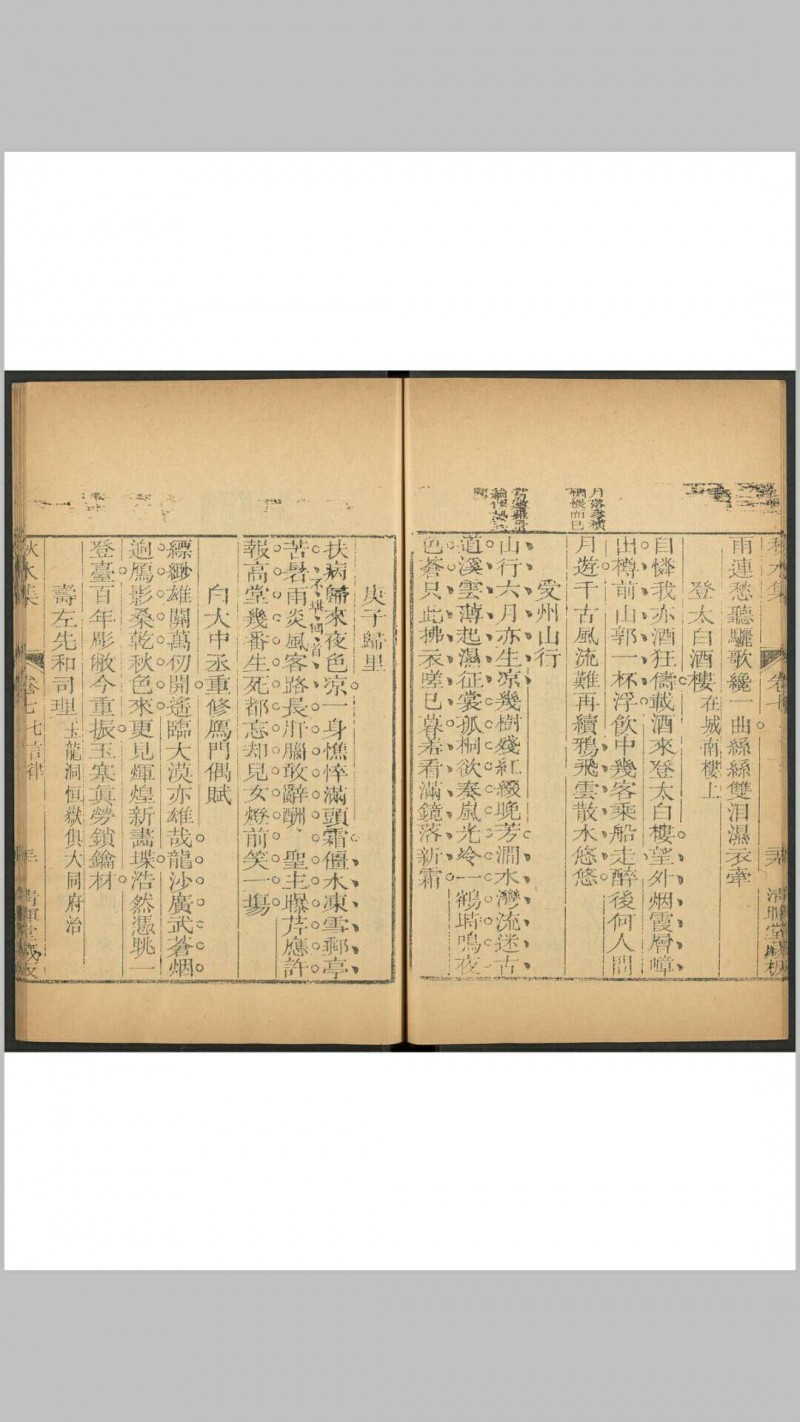 雨連愁聽驪歌纔一曲絲絲雙泪濕衣牽
登太白酒樓 在城南樓上
自憐我亦酒狂儔載酒來登太白樓望外烟霞層嶂
出樽前山郭一杯浮飲中幾客乘船走醉後何人問
月遊千古風流難再續鴉飛雲散水悠悠
受州山行
山行六月亦生凉幾樹殘紅綴晚芳澗水灣流迷古
道溪雲薄起濕征裳孤桐欲奏嵐光冷一鶴時鳴夜
色蒼只此拂衣嗟已暮羞看滿鏡落新霜
庚子歸里
扶病歸來夜色凉一身憔悴滿頭霜僵木凍雪郵亭
不堪回首
苦暑雨炎風客路長肝腦敢辭酬 聖主曝芹應許
報高堂幾番生死都忘却兒女燈前笑一塲
白大中丞重修鴈門偶賦
縹緲雄關萬仞開遙臨大漠亦雄哉龍沙廣武蒼烟
迥鴈影桑乾秋色來更見輝煌新畵堞浩然憑眺一
登臺百年彫敝今重振玉塞眞勞鎖鑰材
壽左先和司理 玉龍洞恒嶽俱大同府治
秋水集 卷七七言律